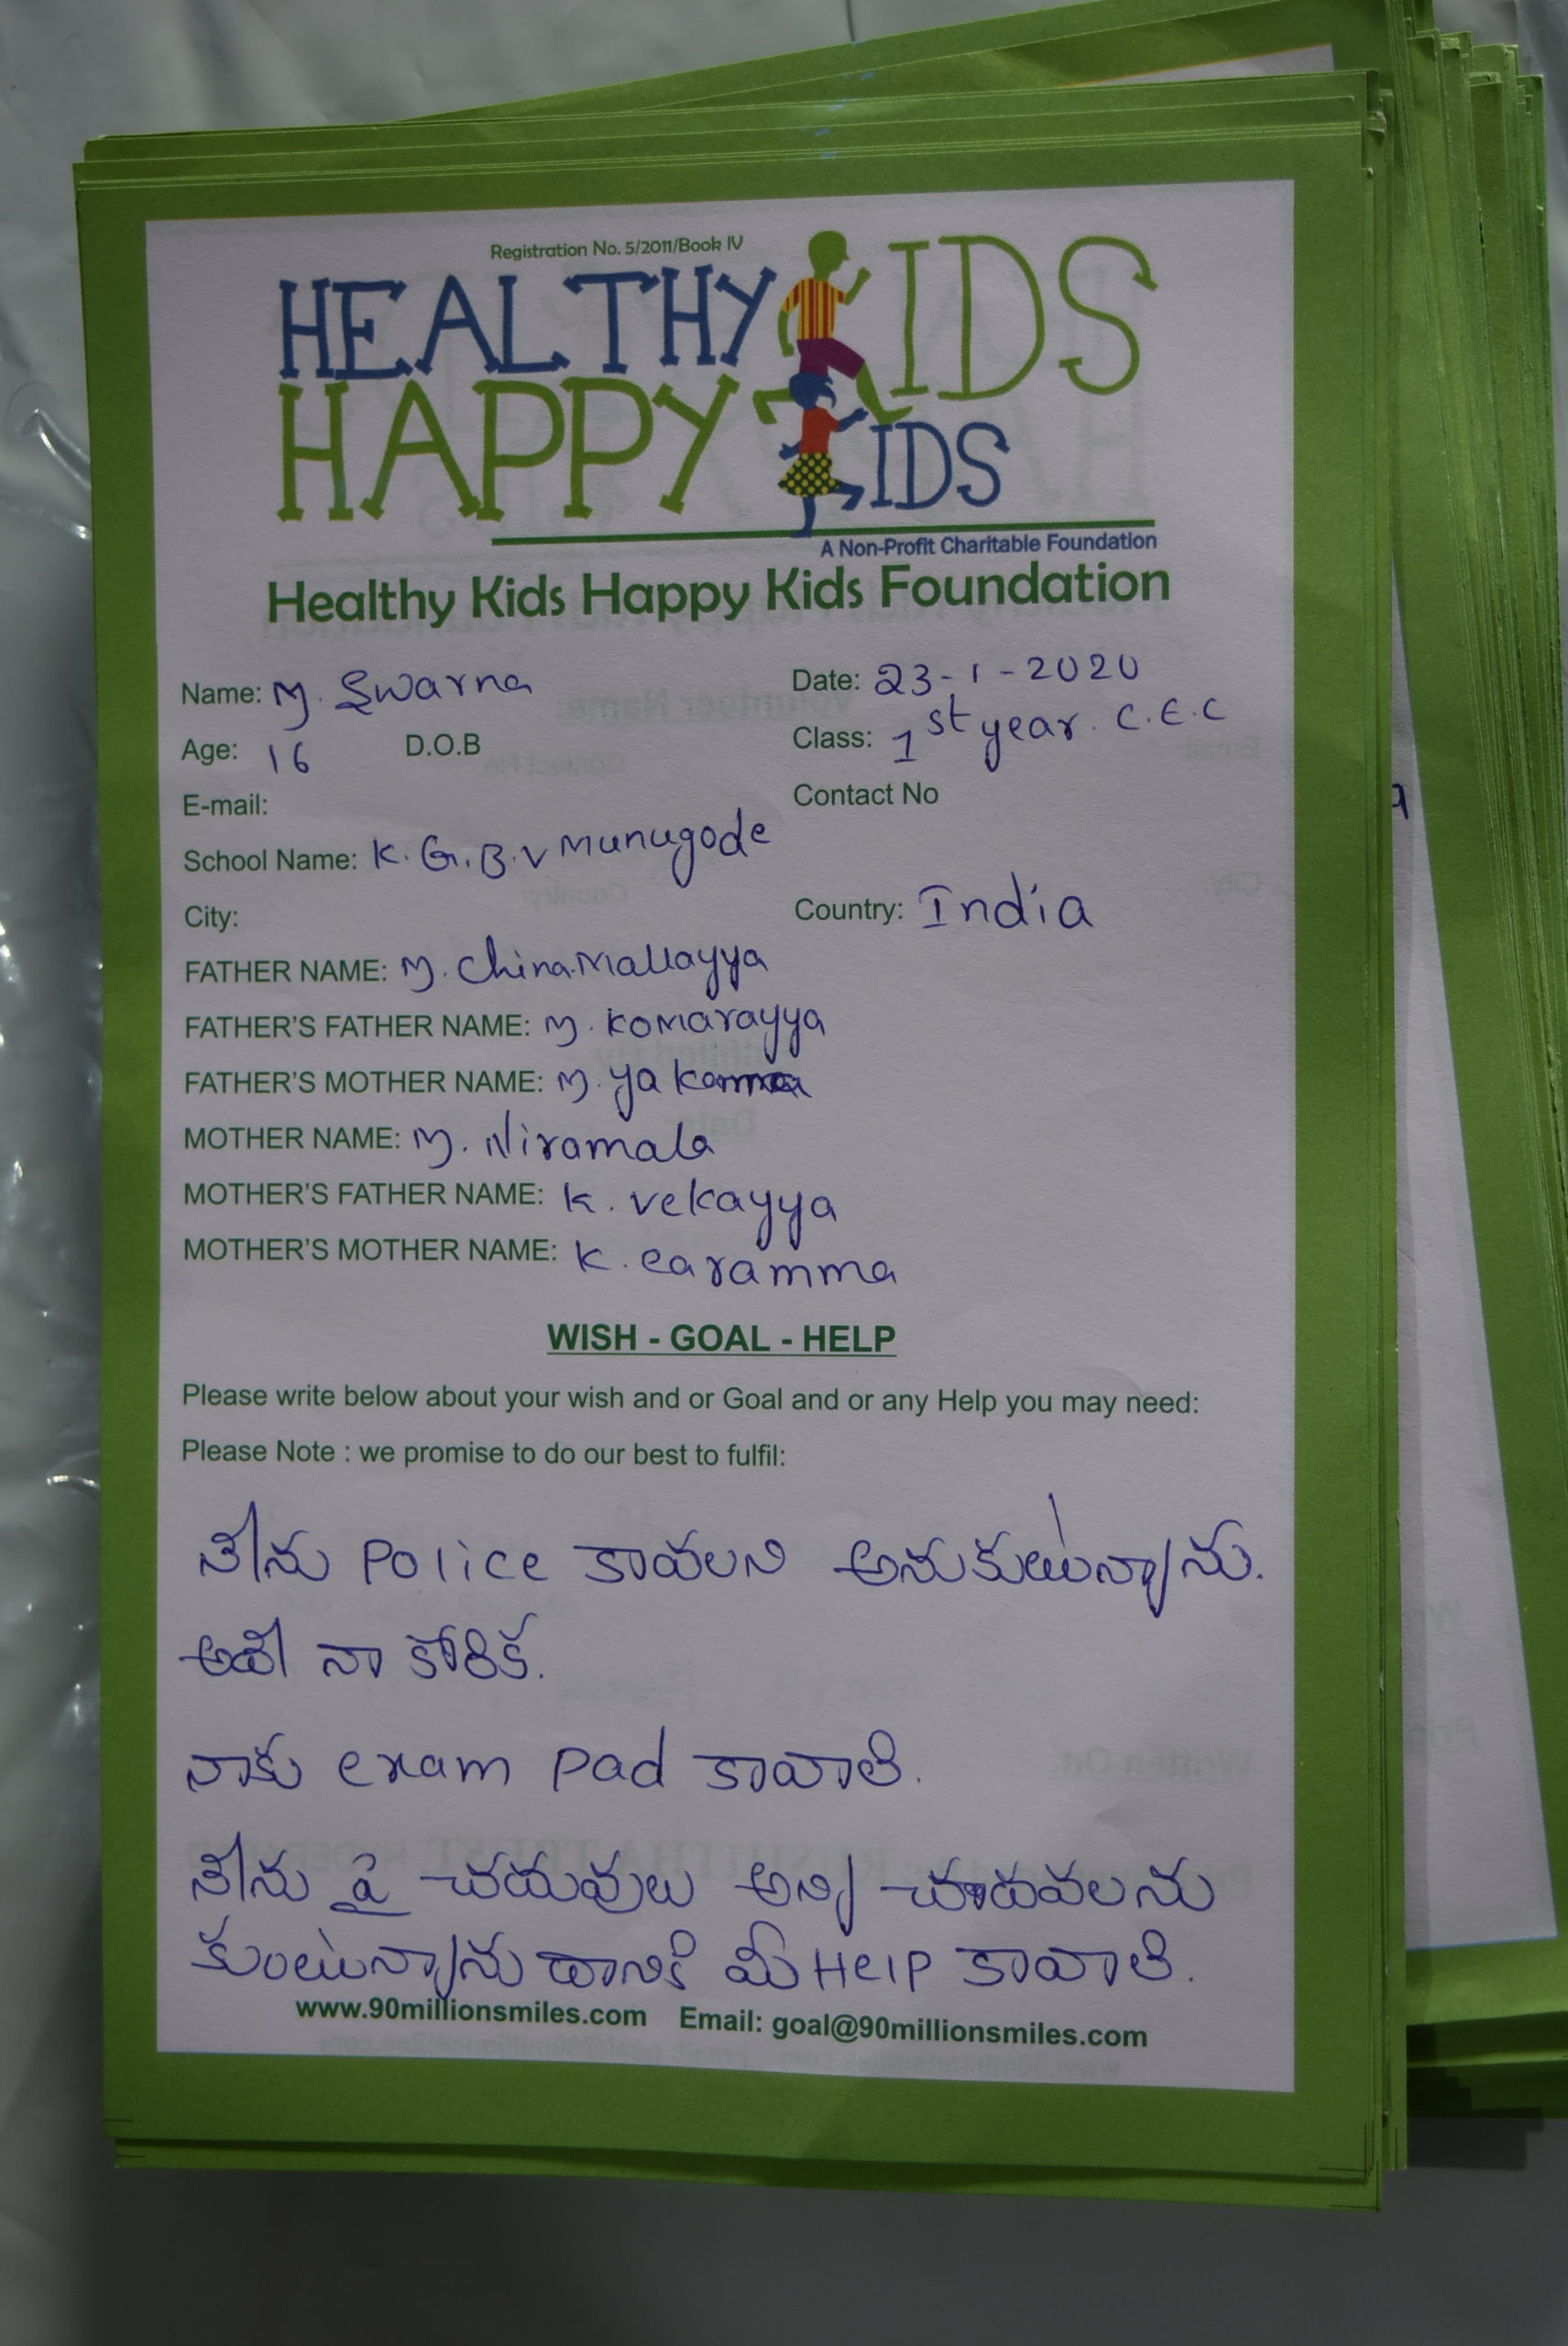 Registration No. 5/2011/Book IV
HEALTHY KIDS
HAPPY KIDS
A Non-Profit Charitable Foundation
Healthy Kids Happy Kids Foundation
Name: M. Swarna Date: 23-1-2020
Age: 16 D.O.B Class: 1st year. C.E.C
E-mail: Contact No
School Name: K.G.B.V Munugode
City: Country: India
FATHER NAME: M. China.Mallayya
FATHER'S FATHER NAME: M. Komarayya
FATHER'S MOTHER NAME: M. ya kamma
MOTHER NAME: M. Niramala
MOTHER'S FATHER NAME: K. vekayya
MOTHER'S MOTHER NAME: K. earamma
WISH - GOAL - HELP
Please write below about your wish and or Goal and or any Help you may need:
Please Note : we promise to do our best to fulfil:
నేను Police కావలని అనుకుటున్నాను.
అదే నా కోరిక.
నాకు exam pad కావాలి.
నేను పై చదువులు అన్ని చదవలను
కుంటున్నాను దానికి మీ Help కావాలి.
www.90millionsmiles.com Email: goal@90millionsmiles.com